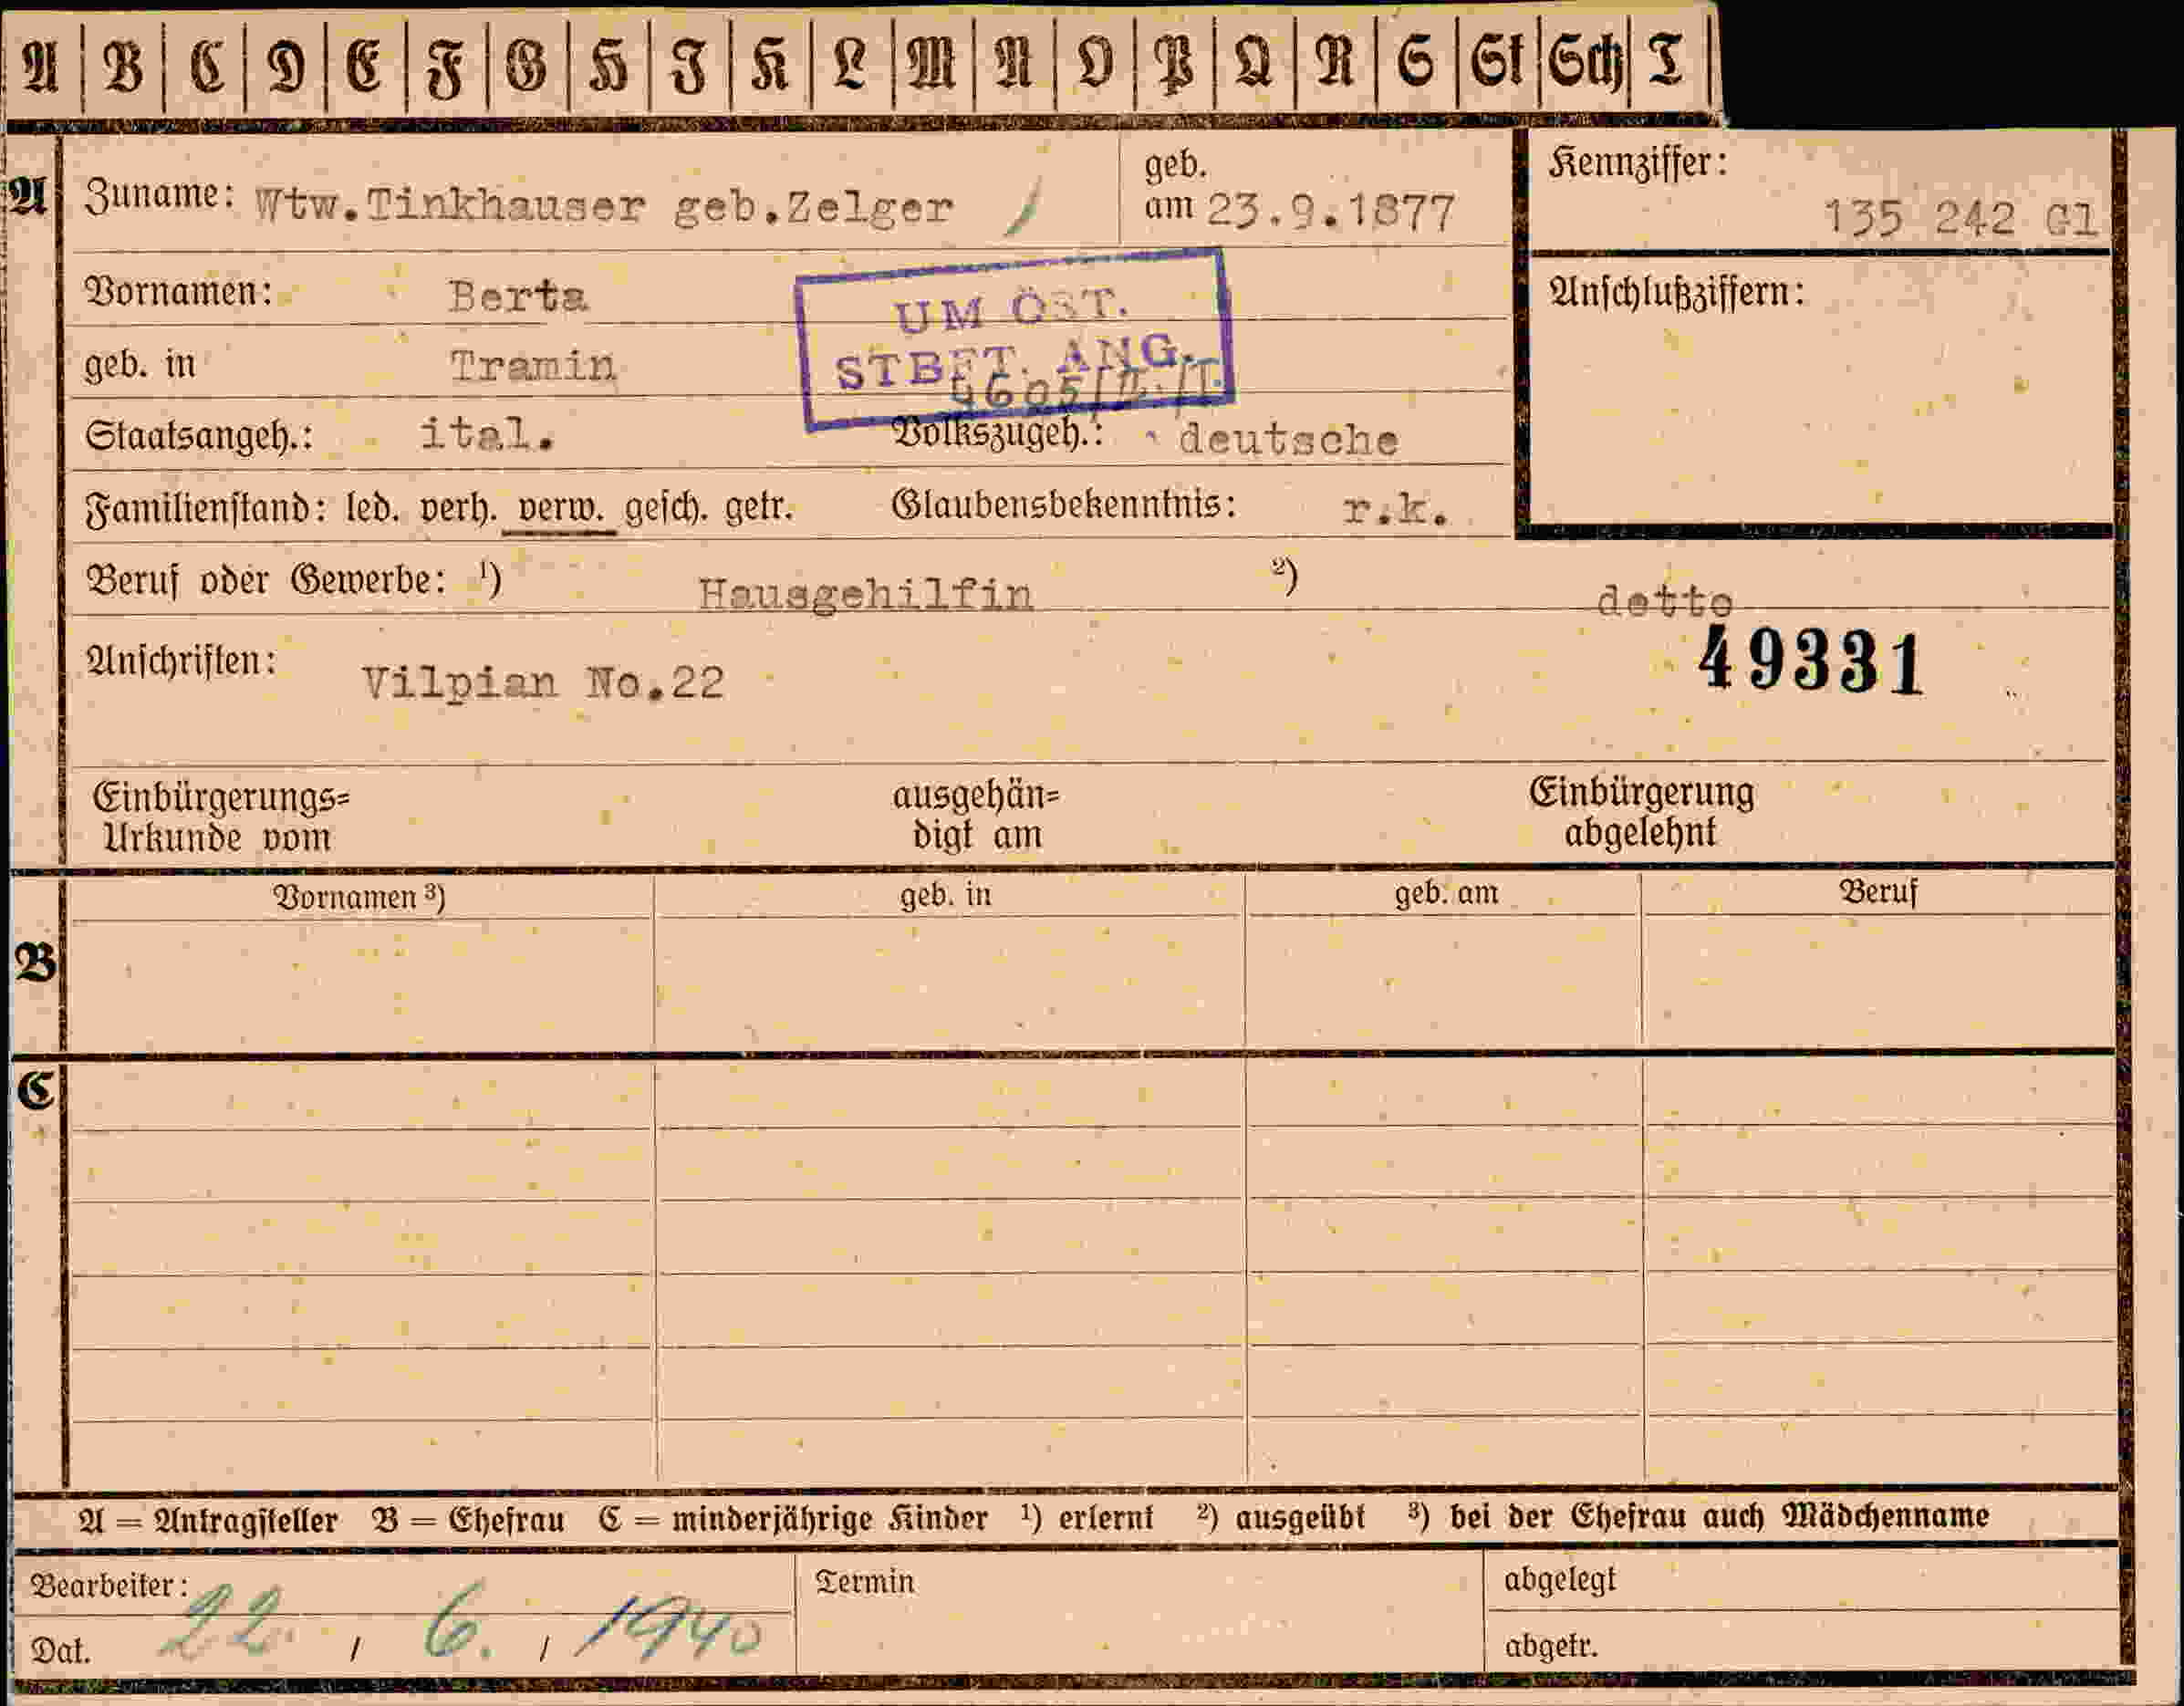 A B C D E F G H I K L M N O P Q R S St Sch T
A
Zuname: Wtw.Tinkhauser geb.Zelger
geb.
am 23.9.1877
Kennziffer:
135 242 Gl
Vornamen: Berta
UM ÖST.
STBFT. ANG.
Anschlußziffern:
geb. in Tramin
Staatsangeh.: ital. Volkszugeh.: deutsche
Familienstand: led. verh. verw. gesch. getr. Glaubensbekenntnis: r.k.
Beruf oder Gewerbe: ¹) Hausgehilfin ²) detto
49331
Anschriften: Vilpian No.22
Einbürgerungs=
Urkunde vom
ausgehän=
digt am
Einbürgerung
abgelehnt
Vornamen ³) geb. in geb. am Beruf
B
C
A = Antragsteller B = Ehefrau C = minderjährige Kinder ¹) erlernt ²) ausgeübt ³) bei der Ehefrau auch Mädchenname
Bearbeiter: Termin abgelegt
Dat. 22. / 6. / 1940 abgetr.